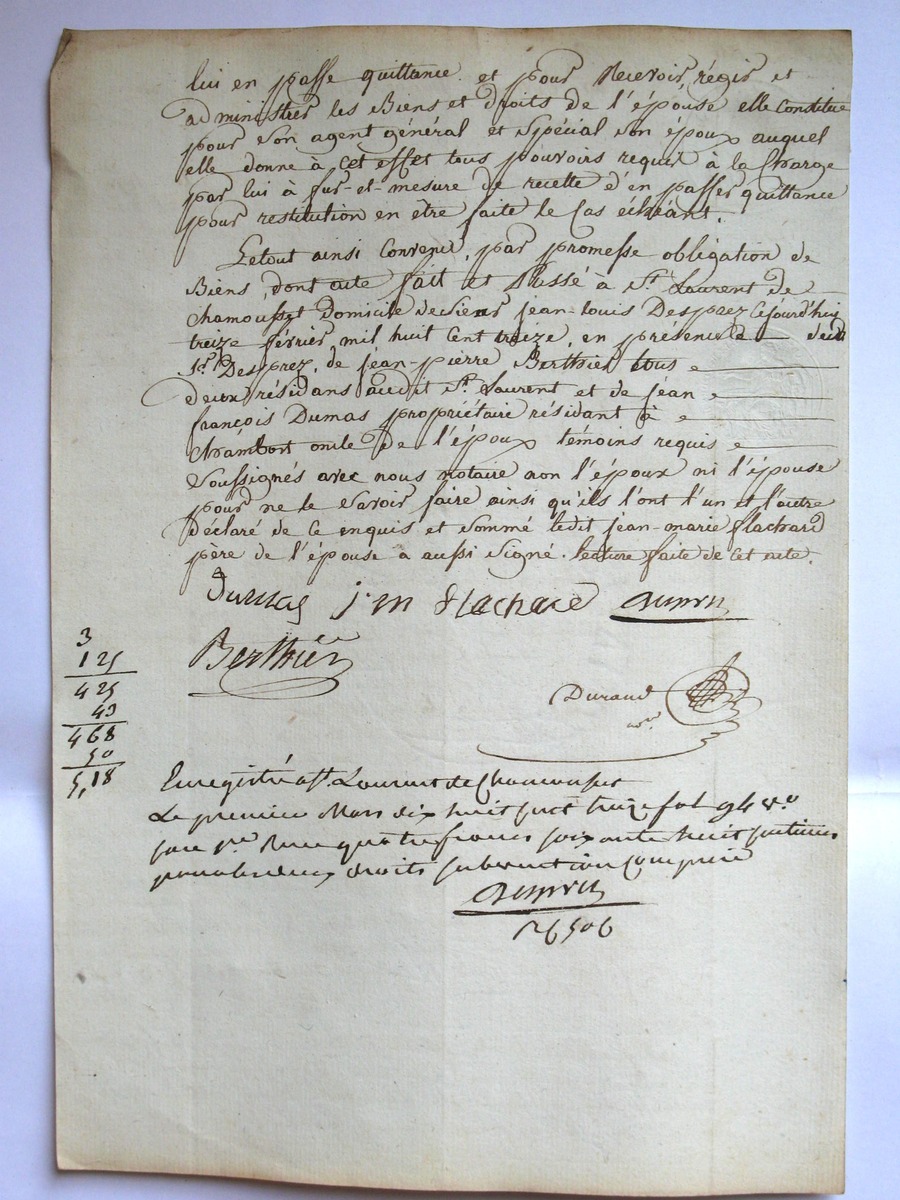 lui en passe quittance. et pour Recevoir, régir et
administrer les Biens et droits de l'épouse elle Constitue
pour son agent général et spécial son époux auquel
elle donne à cet effet tous pouvoirs requis à la Charge
par lui à fur-et-mesure de recette d'en passer quittance
pour restitution en etre faite le Cas échéant.
Letout ainsi Convenu, par promesse obligation de
Biens, dont acte fait et Passé à St. Laurent de
chamousset domicile de sieur jean-louis Desprez Cejourd'hui
treize février mil huit Cent treize, en présence dudit
Sr. Desprez, de jean-pierre Berthier tous
deux résidans audit St. Laurent et de jean
françois Dumas propriétaire résidant à
Chambost oncle de l'époux témoins requis
soussignés avec nous notaire non l'époux ni l'épouse
pour ne le savoir faire ainsi qu'ils l'ont l'un et l'autre
déclaré de Ce enquis et sommé ledit jean-marie flachard
père de l'épouse a aussi signé. lecture faite de cet acte.
Dumas j.m flachard Desprez
3
125
425
43
468
50
5,18
Berthier
Durand
nre.
Enregistré à St. Laurent de Chamousset
Le premier Mars dix huit cent treize fol 94 vo.
case 1re. Reçu quatre francs soixante huit centimes
pour les deux droits subvention comprise
Desprez
26506